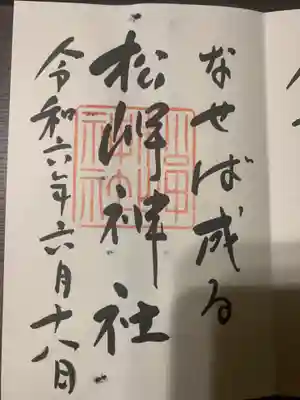 なせば成る
松岬神社
令和六年六月十八日